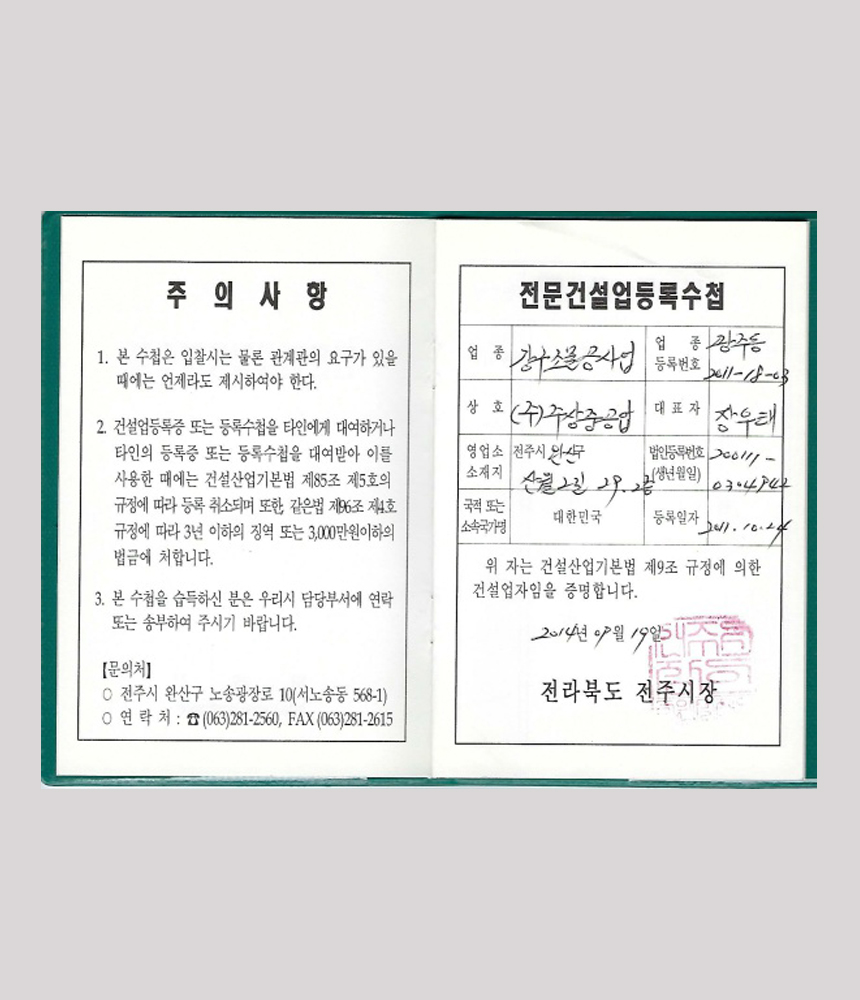 주 의 사 항
1. 본 수첩은 입찰시는 물론 관계관의 요구가 있을
때에는 언제라도 제시하여야 한다.
2. 건설업등록증 또는 등록수첩을 타인에게 대여하거나
타인의 등록증 또는 등록수첩을 대여받아 이를
사용한 때에는 건설산업기본법 제85조 제5호의
규정에 따라 등록 취소되며 또한, 같은법 제96조 제4호
규정에 따라 3년 이하의 징역 또는 3,000만원이하의
법금에 처합니다.
3. 본 수첩을 습득하신 분은 우리시 담당부서에 연락
또는 송부하여 주시기 바랍니다.
【문의처】
○ 전주시 완산구 노송광장로 10(서노송동 568-1)
○ 연 락 처 : ☎ (063)281-2560, FAX (063)281-2615
전문건설업등록수첩
업 종 강구조물공사업 업 종 등록번호 광주동 2011-18-03
상 호 (주)주상중공업 대 표 자 장우태
영업소 소재지 전주시 완산구 2길 29. 2층 법인등록번호 (생년월일) 200111-0304942
국적 또는 소속국가명 대한민국 등록일자 2011.10.24
위 자는 건설산업기본법 제9조 규정에 의한
건설업자임을 증명합니다.
2014년 09월 19일
전라북도 전주시장